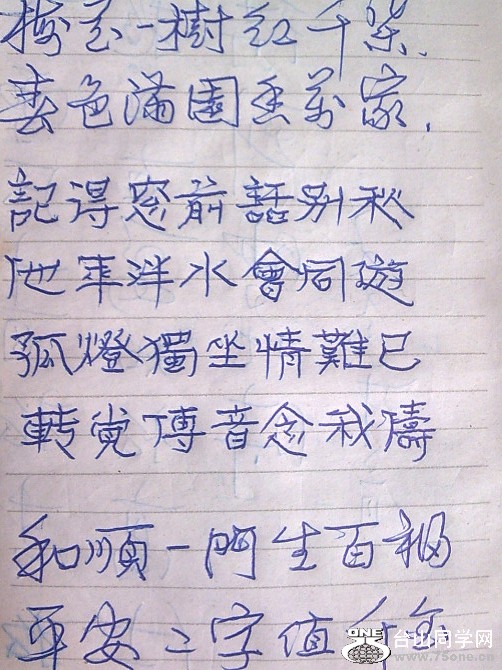 梅花一樹紅千朵.
春色滿園香萬家.
記得窓前話别秋
他年泮水會同遊
孤燈獨坐情難已
轉覺傳音念我儔
和順一門生百福
平安二字值千金
ONE
台山同学网
www.75one.com